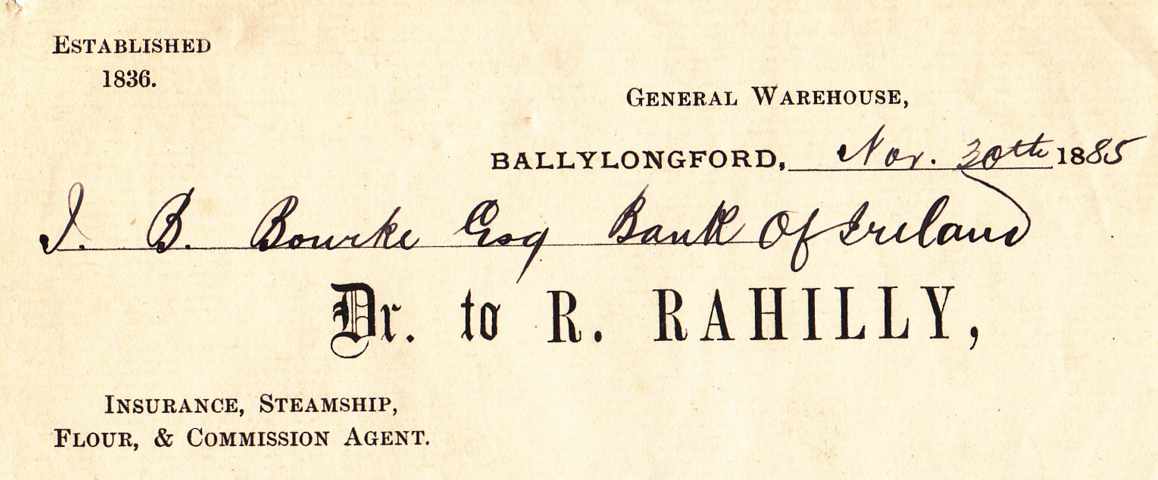 ESTABLISHED
1836.
GENERAL WAREHOUSE,
BALLYLONGFORD, Nov. 30th 1885
J. B. Bourke Esq Bank Of Ireland
Dr. to R. RAHILLY,
INSURANCE, STEAMSHIP,
FLOUR, & COMMISSION AGENT.